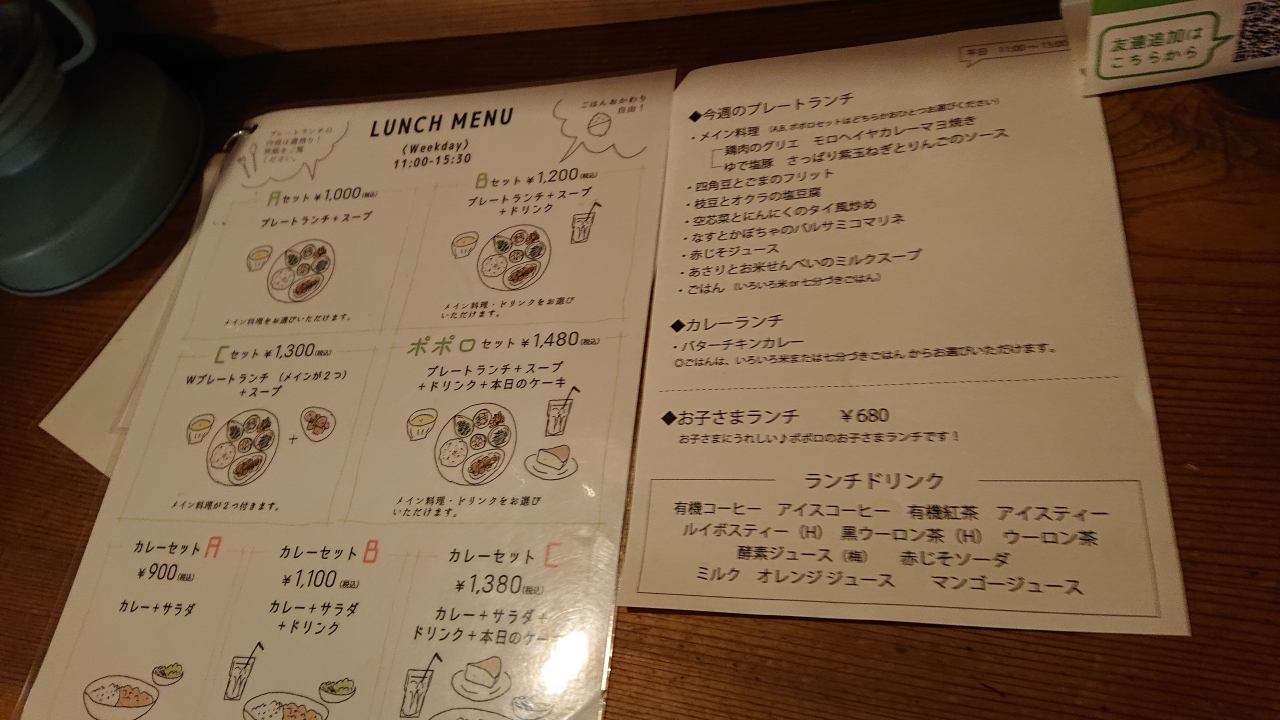 LUNCH MENU
(Weekday)
11:00-15:30
プレートランチの
内容は週替り！
別紙をご覧
ください。
ごはんおかわり
自由！
Aセット ¥1,000(税込)
プレートランチ+スープ
メイン料理をお選びいただけます。
Bセット ¥1,200(税込)
プレートランチ+スープ
+ドリンク
メイン料理・ドリンクをお選び
いただけます。
Cセット ¥1,300(税込)
Wプレートランチ (メインが2つ)
+スープ
メイン料理が2つ付きます。
ポポロセット ¥1,480(税込)
プレートランチ+スープ
+ドリンク+本日のケーキ
メイン料理・ドリンクをお選び
いただけます。
カレーセットA
¥900(税込)
カレー+サラダ
カレーセットB
¥1,100(税込)
カレー+サラダ
+ドリンク
カレーセットC
¥1,380(税込)
カレー+サラダ+
ドリンク+本日のケーキ
友達追加は
こちらから
平日 11:00～15:00
◆今週のプレートランチ
・メイン料理 (A,B,ポポロセットはどちらかおひとつお選びください)
鶏肉のグリエ モロヘイヤカレーマヨ焼き
ゆで塩豚 さっぱり紫玉ねぎとりんごのソース
・四角豆とごまのフリット
・枝豆とオクラの塩豆腐
・空芯菜とにんにくのタイ風炒め
・なすとかぼちゃのバルサミコマリネ
・赤じそジュース
・あさりとお米せんべいのミルクスープ
・ごはん (いろいろ米or七分づきごはん)
◆カレーランチ
・バターチキンカレー
◎ごはんは、いろいろ米または七分づきごはん からお選びいただけます。
◆お子さまランチ ¥680
お子さまにうれしい♪ポポロのお子さまランチです！
ランチドリンク
有機コーヒー アイスコーヒー 有機紅茶 アイスティー
ルイボスティー (H) 黒ウーロン茶 (H) ウーロン茶
酵素ジュース (梅) 赤じそソーダ
ミルク オレンジジュース マンゴージュース